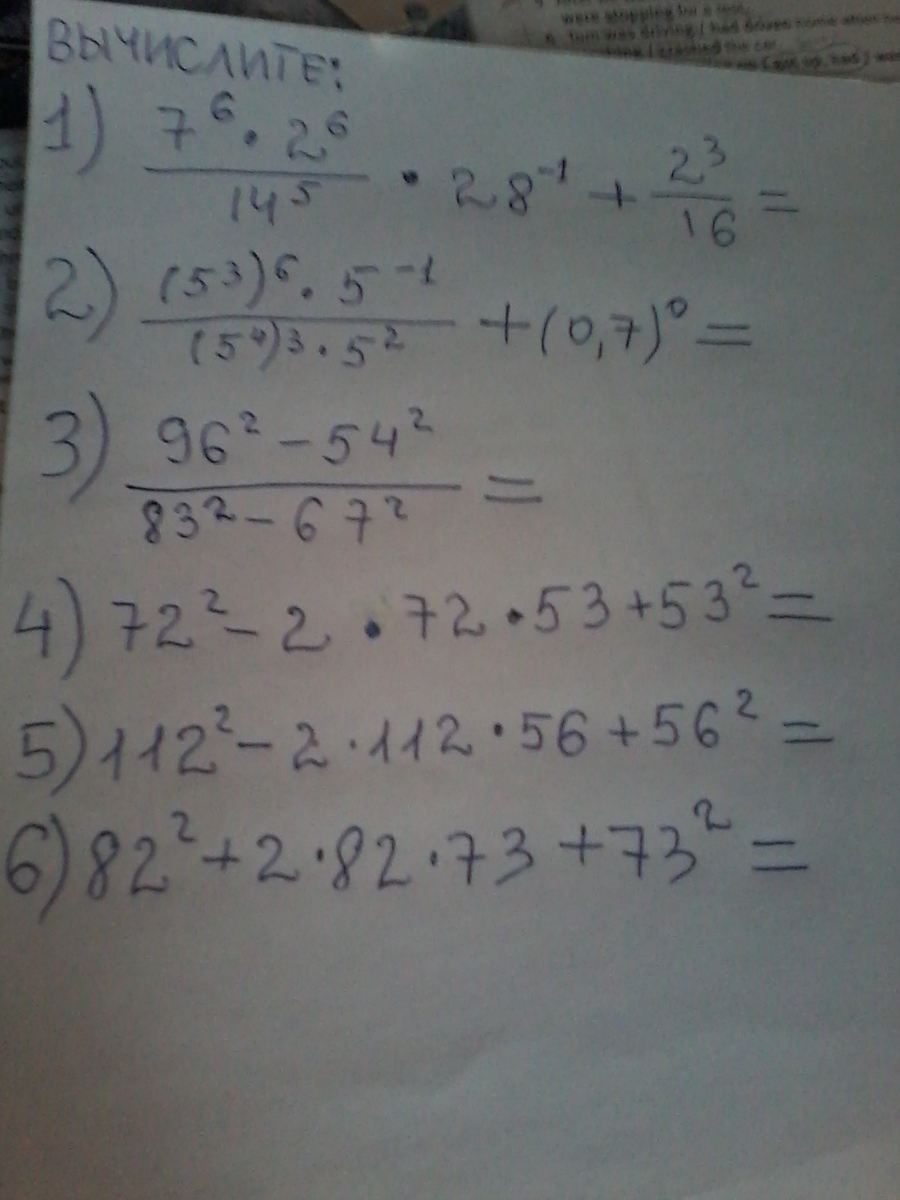 were stopping for a rest.
ВЫЧИСЛИТЕ:
1) \frac{7^6 \cdot 2^6}{14^5} \cdot 28^{-1} + \frac{2^3}{16} =
2) \frac{(5^3)^6 \cdot 5^{-1}}{(5^4)^3 \cdot 5^2} + (0,7)^0 =
3) \frac{96^2 - 54^2}{83^2 - 67^2} =
4) 72^2 - 2 \cdot 72 \cdot 53 + 53^2 =
5) 112^2 - 2 \cdot 112 \cdot 56 + 56^2 =
6) 82^2 + 2 \cdot 82 \cdot 73 + 73^2 =